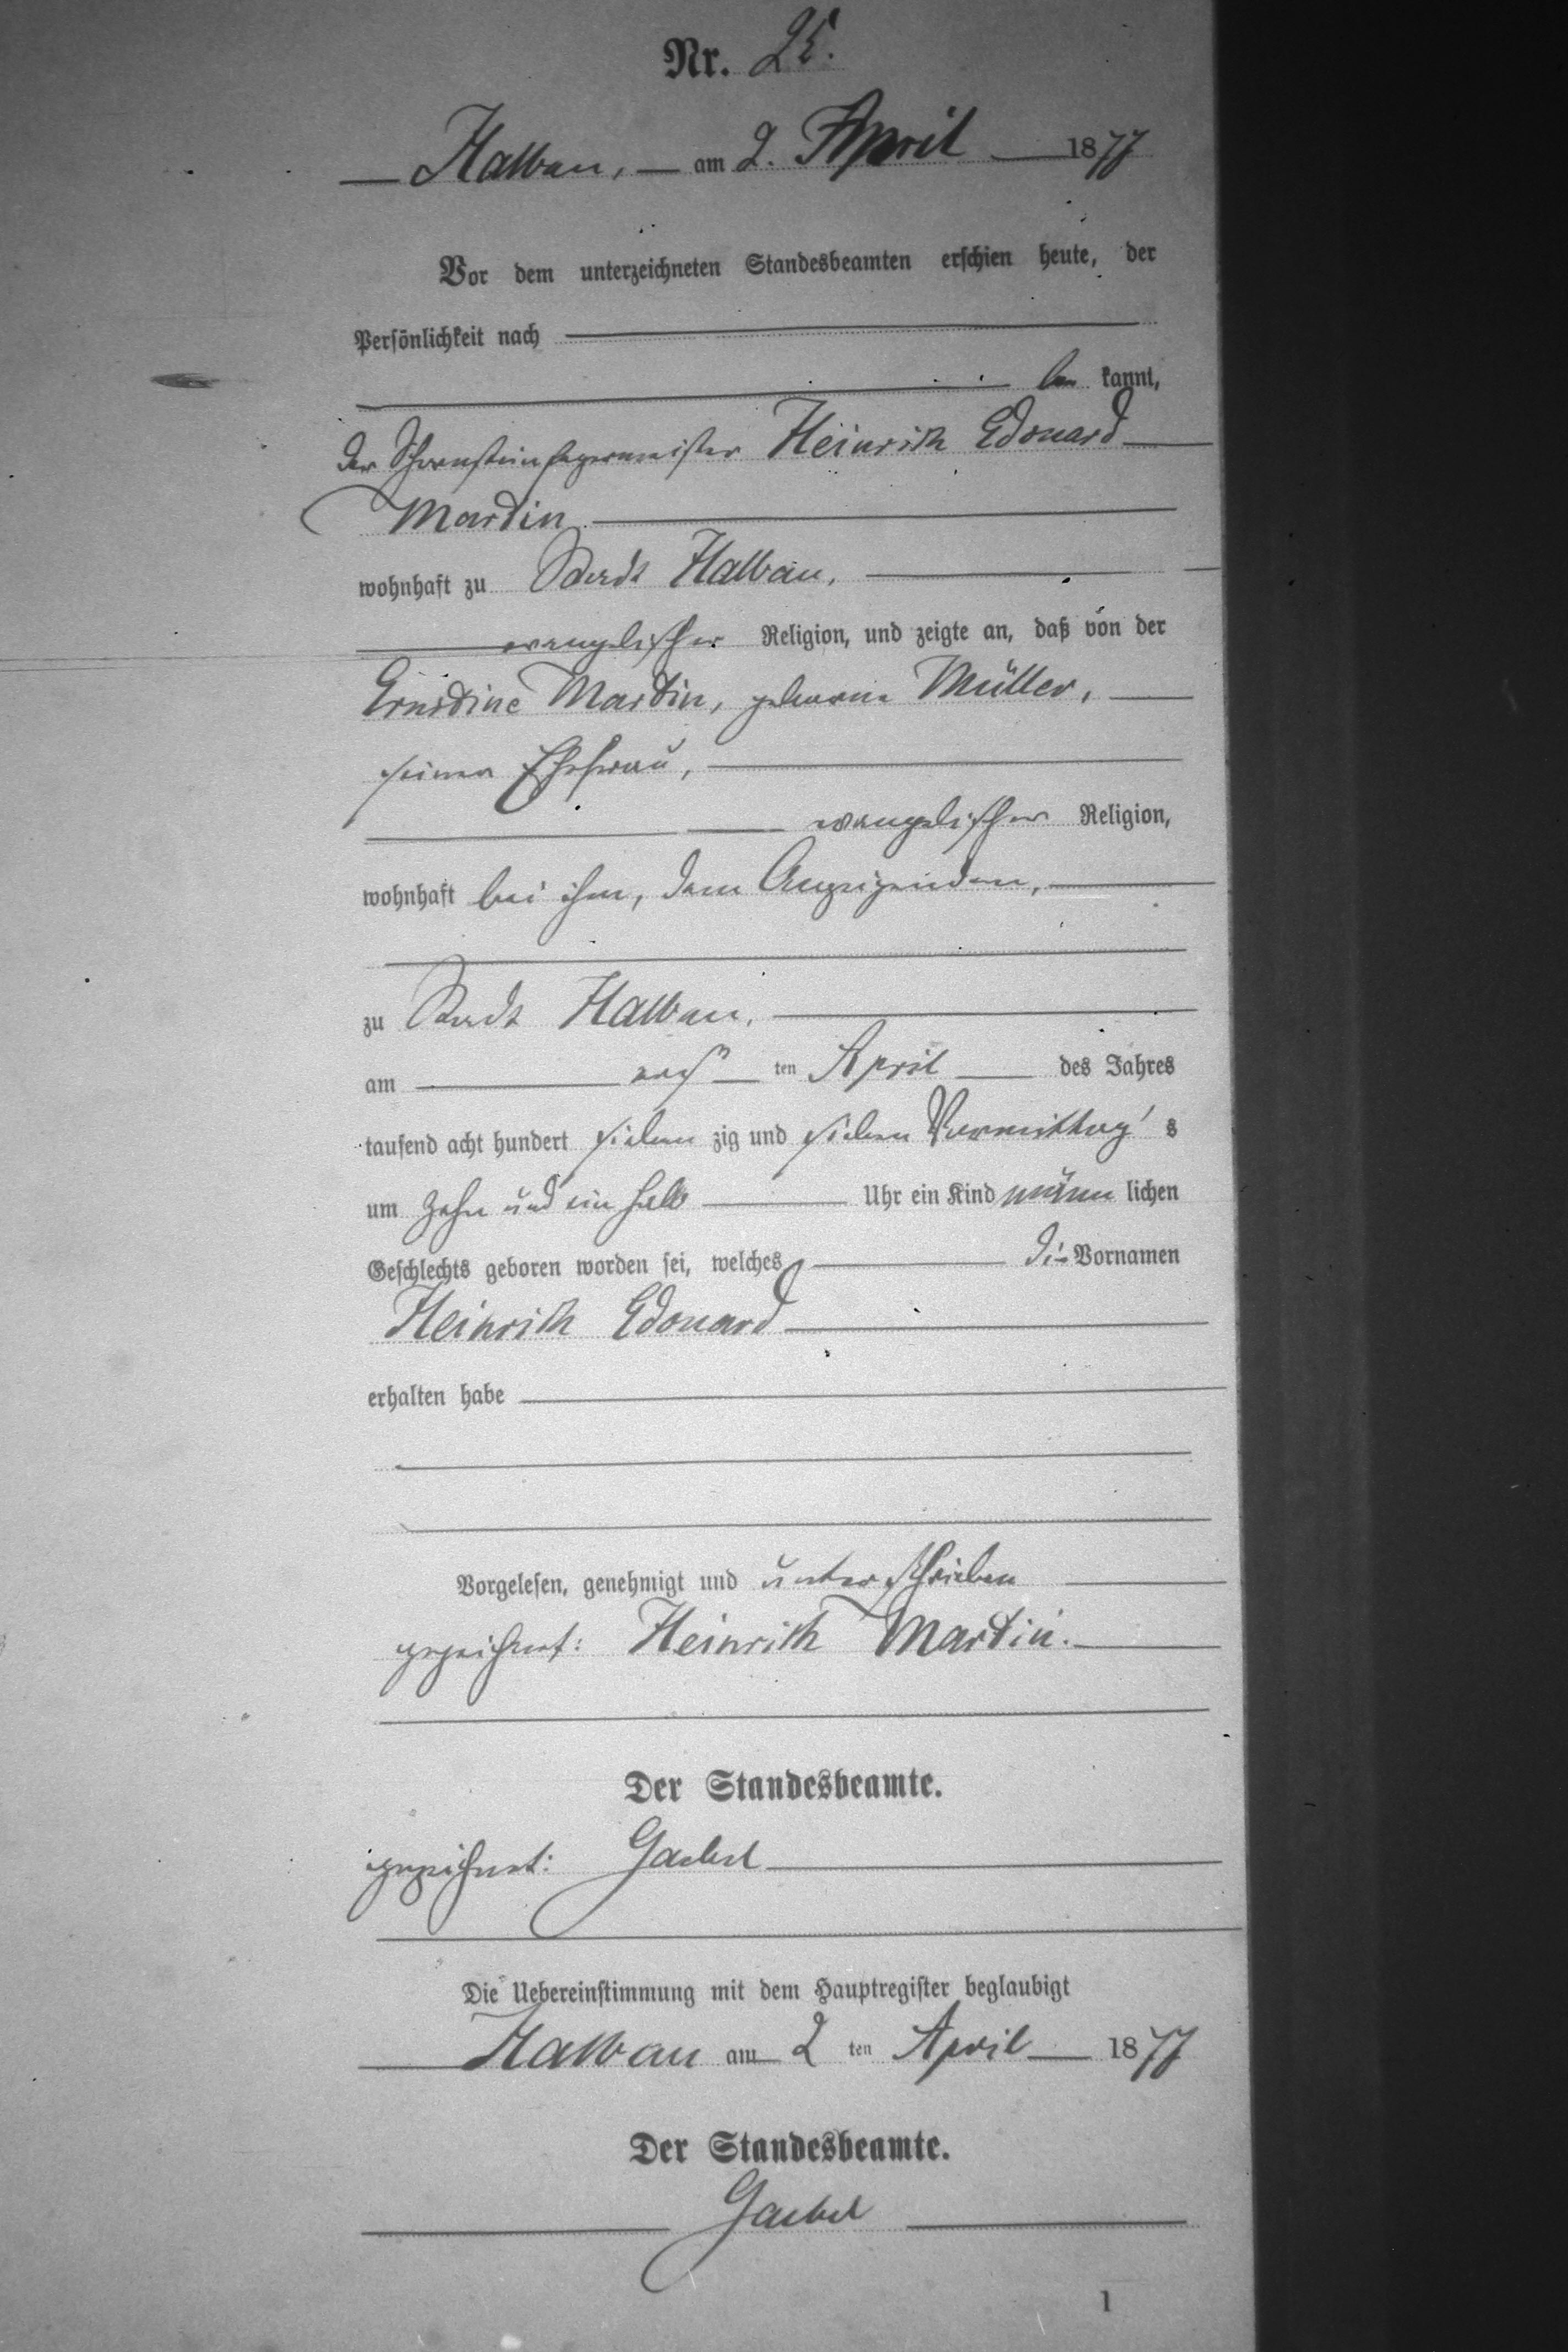 Nr. 25.
Halbau, am 2. April 1877
Vor dem unterzeichneten Standesbeamten erschien heute, der
Persönlichkeit nach
be kannt,
der Schornsteinfegermeister Heinrich Edouard
Martin
wohnhaft zu Stadt Halbau,
evangelischer Religion, und zeigte an, daß von der
Ernestine Martin, geborene Müller,
seiner Ehefrau,
evangelischer Religion,
wohnhaft bei ihm, dem Anzeigenden,
zu Stadt Halbau,
am ers ten April des Jahres
tausend acht hundert sieben zig und sieben Vormittag s
um zehn und ein halb Uhr ein Kind männ lichen
Geschlechts geboren worden sei, welches die Vornamen
Heinrich Edouard
erhalten habe
Vorgelesen, genehmigt und unterschrieben
gezeichnet: Heinrich Martin.
Der Standesbeamte.
gezeichnet: Gaebel
Die Uebereinstimmung mit dem Hauptregister beglaubigt
Halbau am 2 ten April 1877
Der Standesbeamte.
Gaebel
1